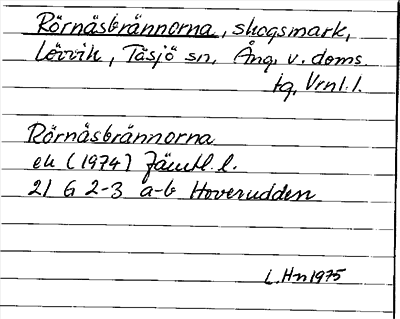 Rörnäsbrännorna, skogsmark,
Lövvik, Täsjö sn, Ång. v. doms.
tg, Vrnl. l.
Rörnäsbrännorna
ek (1974) Jämtl. l.
21 G 2-3 a-b Hoverudden
L. Hn 1975